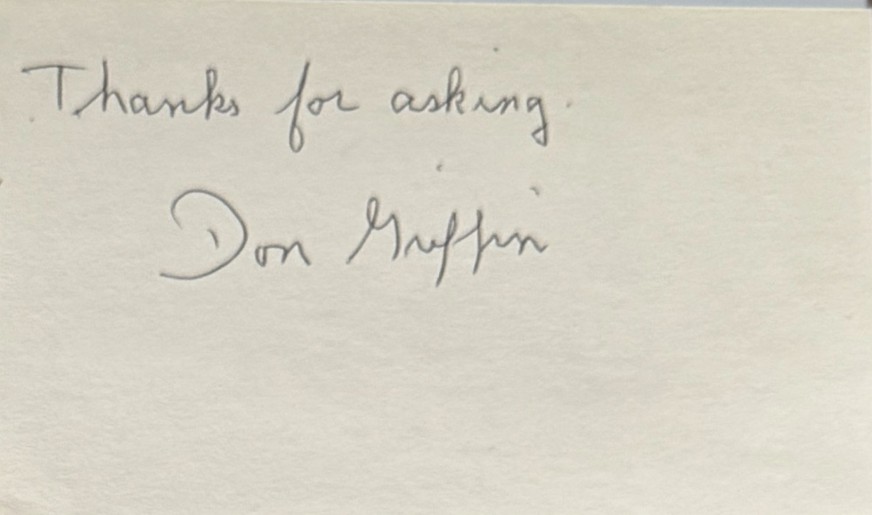 Thanks for asking.
Don Griffin